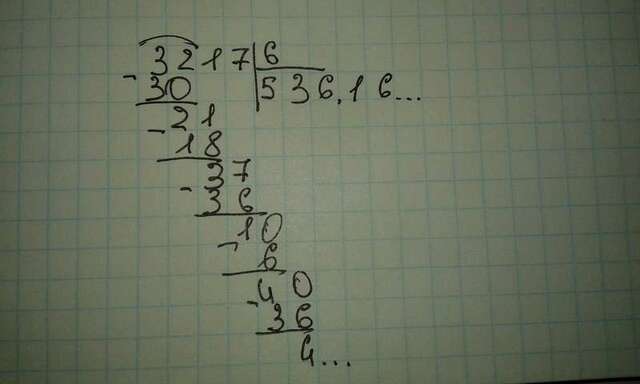 3217 6
- 30 536,16...
21
- 18
37
- 36
10
- 6
40
- 36
4...